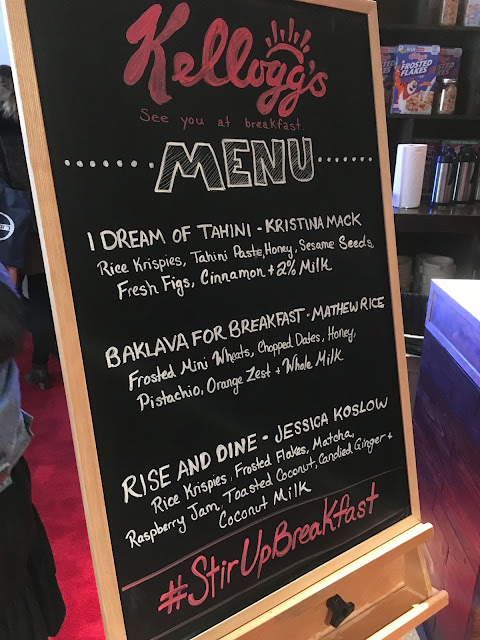 Kellogg's
See you at breakfast.
MENU
I DREAM OF TAHINI - KRISTINA MACK
Rice Krispies, Tahini Paste, Honey, Sesame Seeds,
Fresh Figs, Cinnamon + 2% Milk
BAKLAVA FOR BREAKFAST - MATHEW RICE
Frosted Mini Wheats, Chopped Dates, Honey,
Pistachio, Orange Zest + Whole Milk
RISE AND DINE - JESSICA KOSLOW
Rice Krispies, Frosted Flakes, Matcha,
Raspberry Jam, Toasted Coconut, Candied Ginger +
Coconut Milk
#StirUpBreakfast
FROSTED
FLAKES